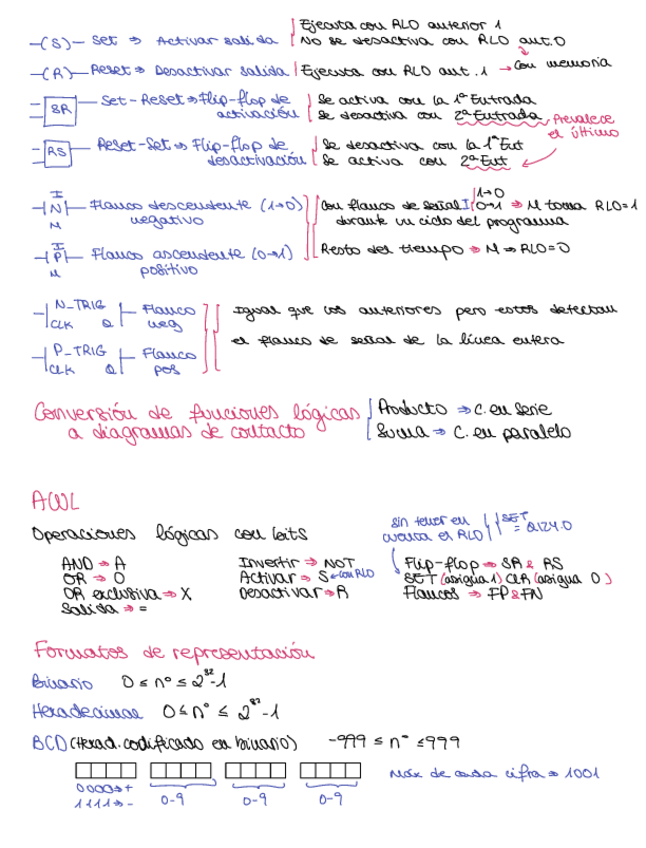 -(S)- Set ⇒ Activar salida Ejecuta con RLO anterior 1
No se desactiva con RLO ant. 0
-(R)- Reset ⇒ Desactivar salida Ejecuta con RLO ant. 1 → Con memoria
SR Set-Reset ⇒ Flip-flop de activación Se activa con la 1ª Entrada
Se desactiva con 2ª Entrada Prevalece el último
RS Reset-Set ⇒ Flip-flop de desactivación Se desactiva con la 1ª Ent
Se activa con 2ª Ent
I
N Flanco descendente (1→0)
negativo
M
I
P Flanco ascendente (0→1)
positivo
M
Con flancos de señal I 1→0
0→1 ⇒ M toma RLO=1
durante un ciclo del programa
Resto del tiempo ⇒ M ⇒ RLO=0
N_TRIG
CLK Q Flanco
neg
P_TRIG
CLK Q Flanco
pos
Igual que los anteriores pero estos detectan
el flanco de señal de la línea entera
Conversión de funciones lógicas
a diagramas de contacto
Producto ⇒ C. en serie
Suma ⇒ C. en paralelo
AWL
Operaciones lógicas con bits
sin tener en
cuenta el RLO
SET
= Q124.0
AND ⇒ A
OR ⇒ O
OR exclusiva ⇒ X
Salida ⇒ =
Invertir ⇒ NOT
Activar ⇒ S ← con RLO
Desactivar ⇒ R
Flip-flop ⇒ SR & RS
SET (asigna 1) CLR (asigna 0)
Flancos ⇒ FP & FN
Formatos de representación
Binario 0 ≤ nº ≤ 2³²-1
Hexadecimal 0 ≤ nº ≤ 2³²-1
BCD (Hexad. codificado en binario) -999 ≤ nº ≤ 999
0000 ⇒ +
1111 ⇒ -
0-9 0-9 0-9
Máx de cada cifra ⇒ 1001